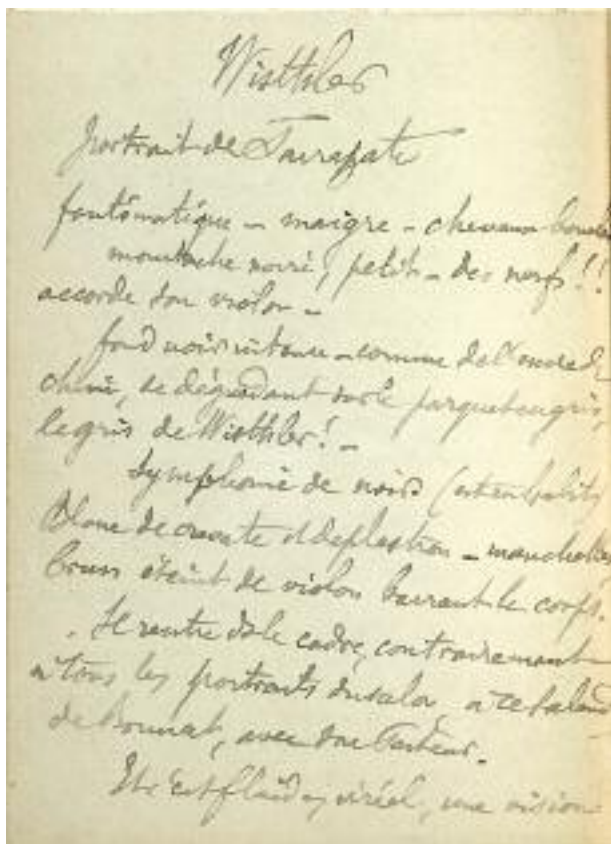 Wisthler
portrait de Sarazate
fantômatique - maigre - cheveux bouclés
moustache noire, petit - des nerfs!!
accorde son violon -
fond noir intense - comme de l'encre de
chine, se dégradant sur le parquet en gris,
le gris de Wisthler! -
Symphonie de noirs (
Blanc de cravate et de plastron - manchettes
brun éteint de violon barrant le corps.
Il rentre ds le cadre, contrairement
à tous les portraits du salon, a ce
de Bonnat, avec son Pasteur.
Et c'est fluide, irréel, une vision